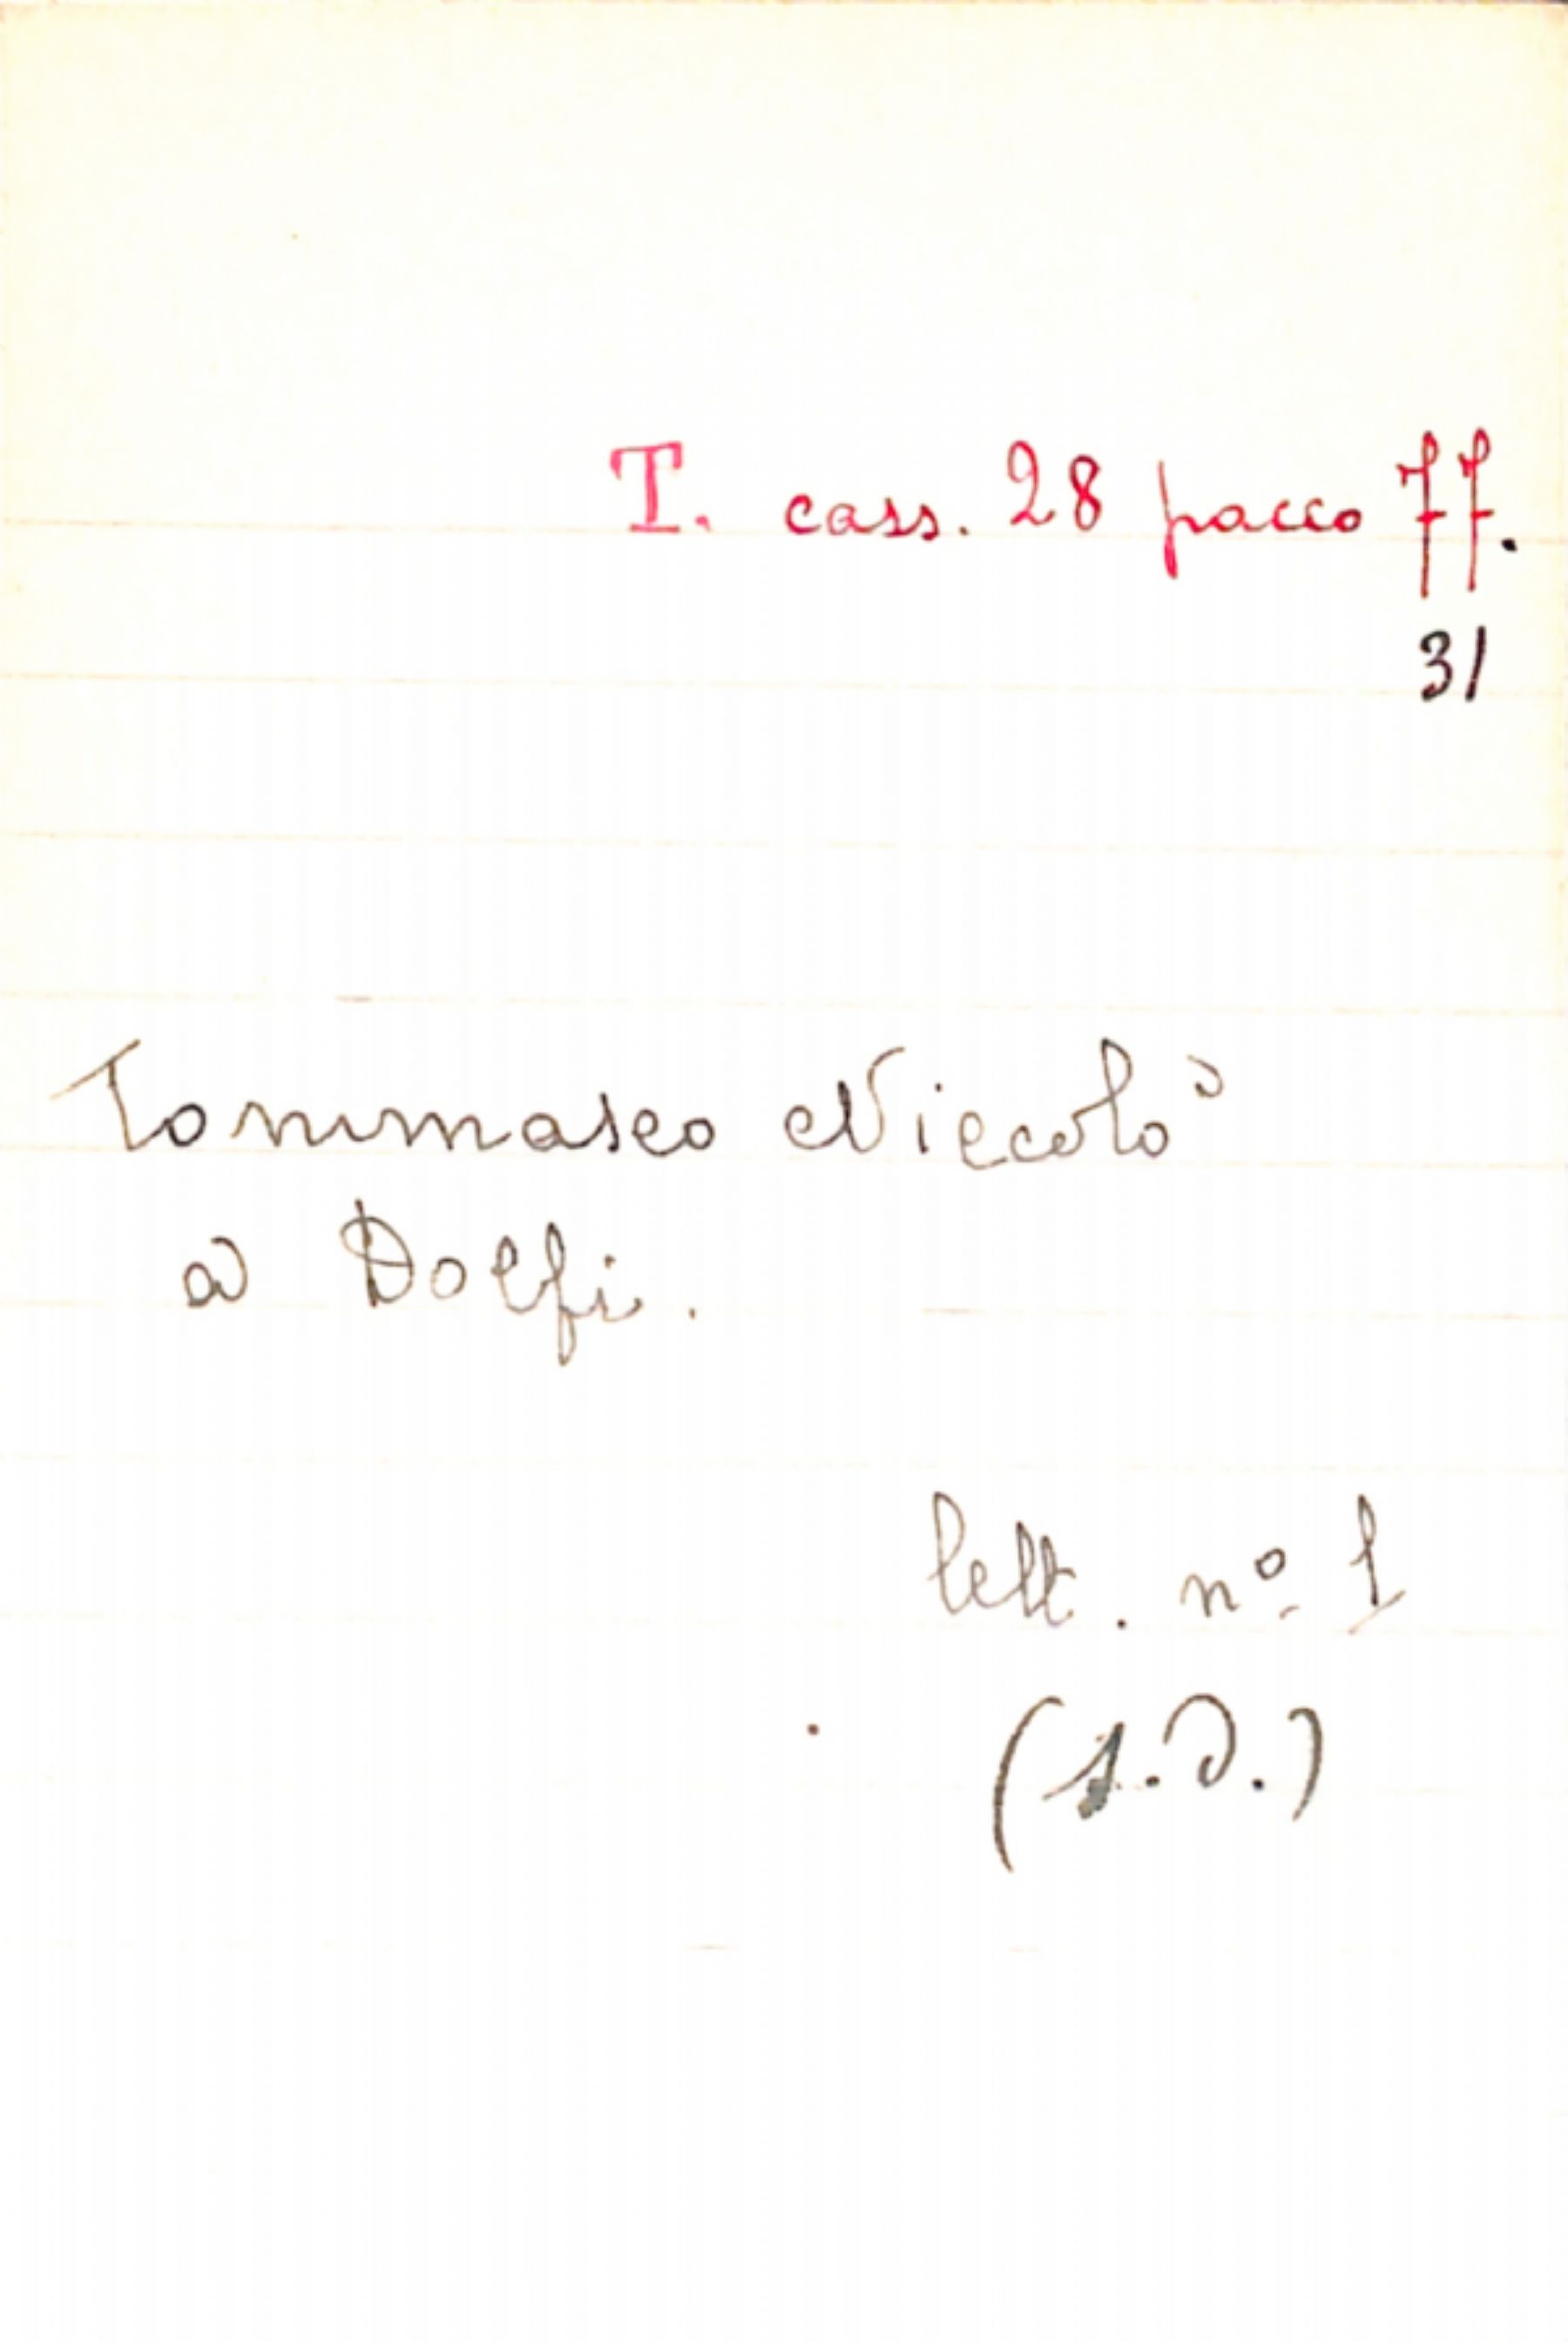 T. cass. 28 pacco 77.
31
Tommaseo Niccolò
a Dolfi.
lett. nº 1
(s.d.)